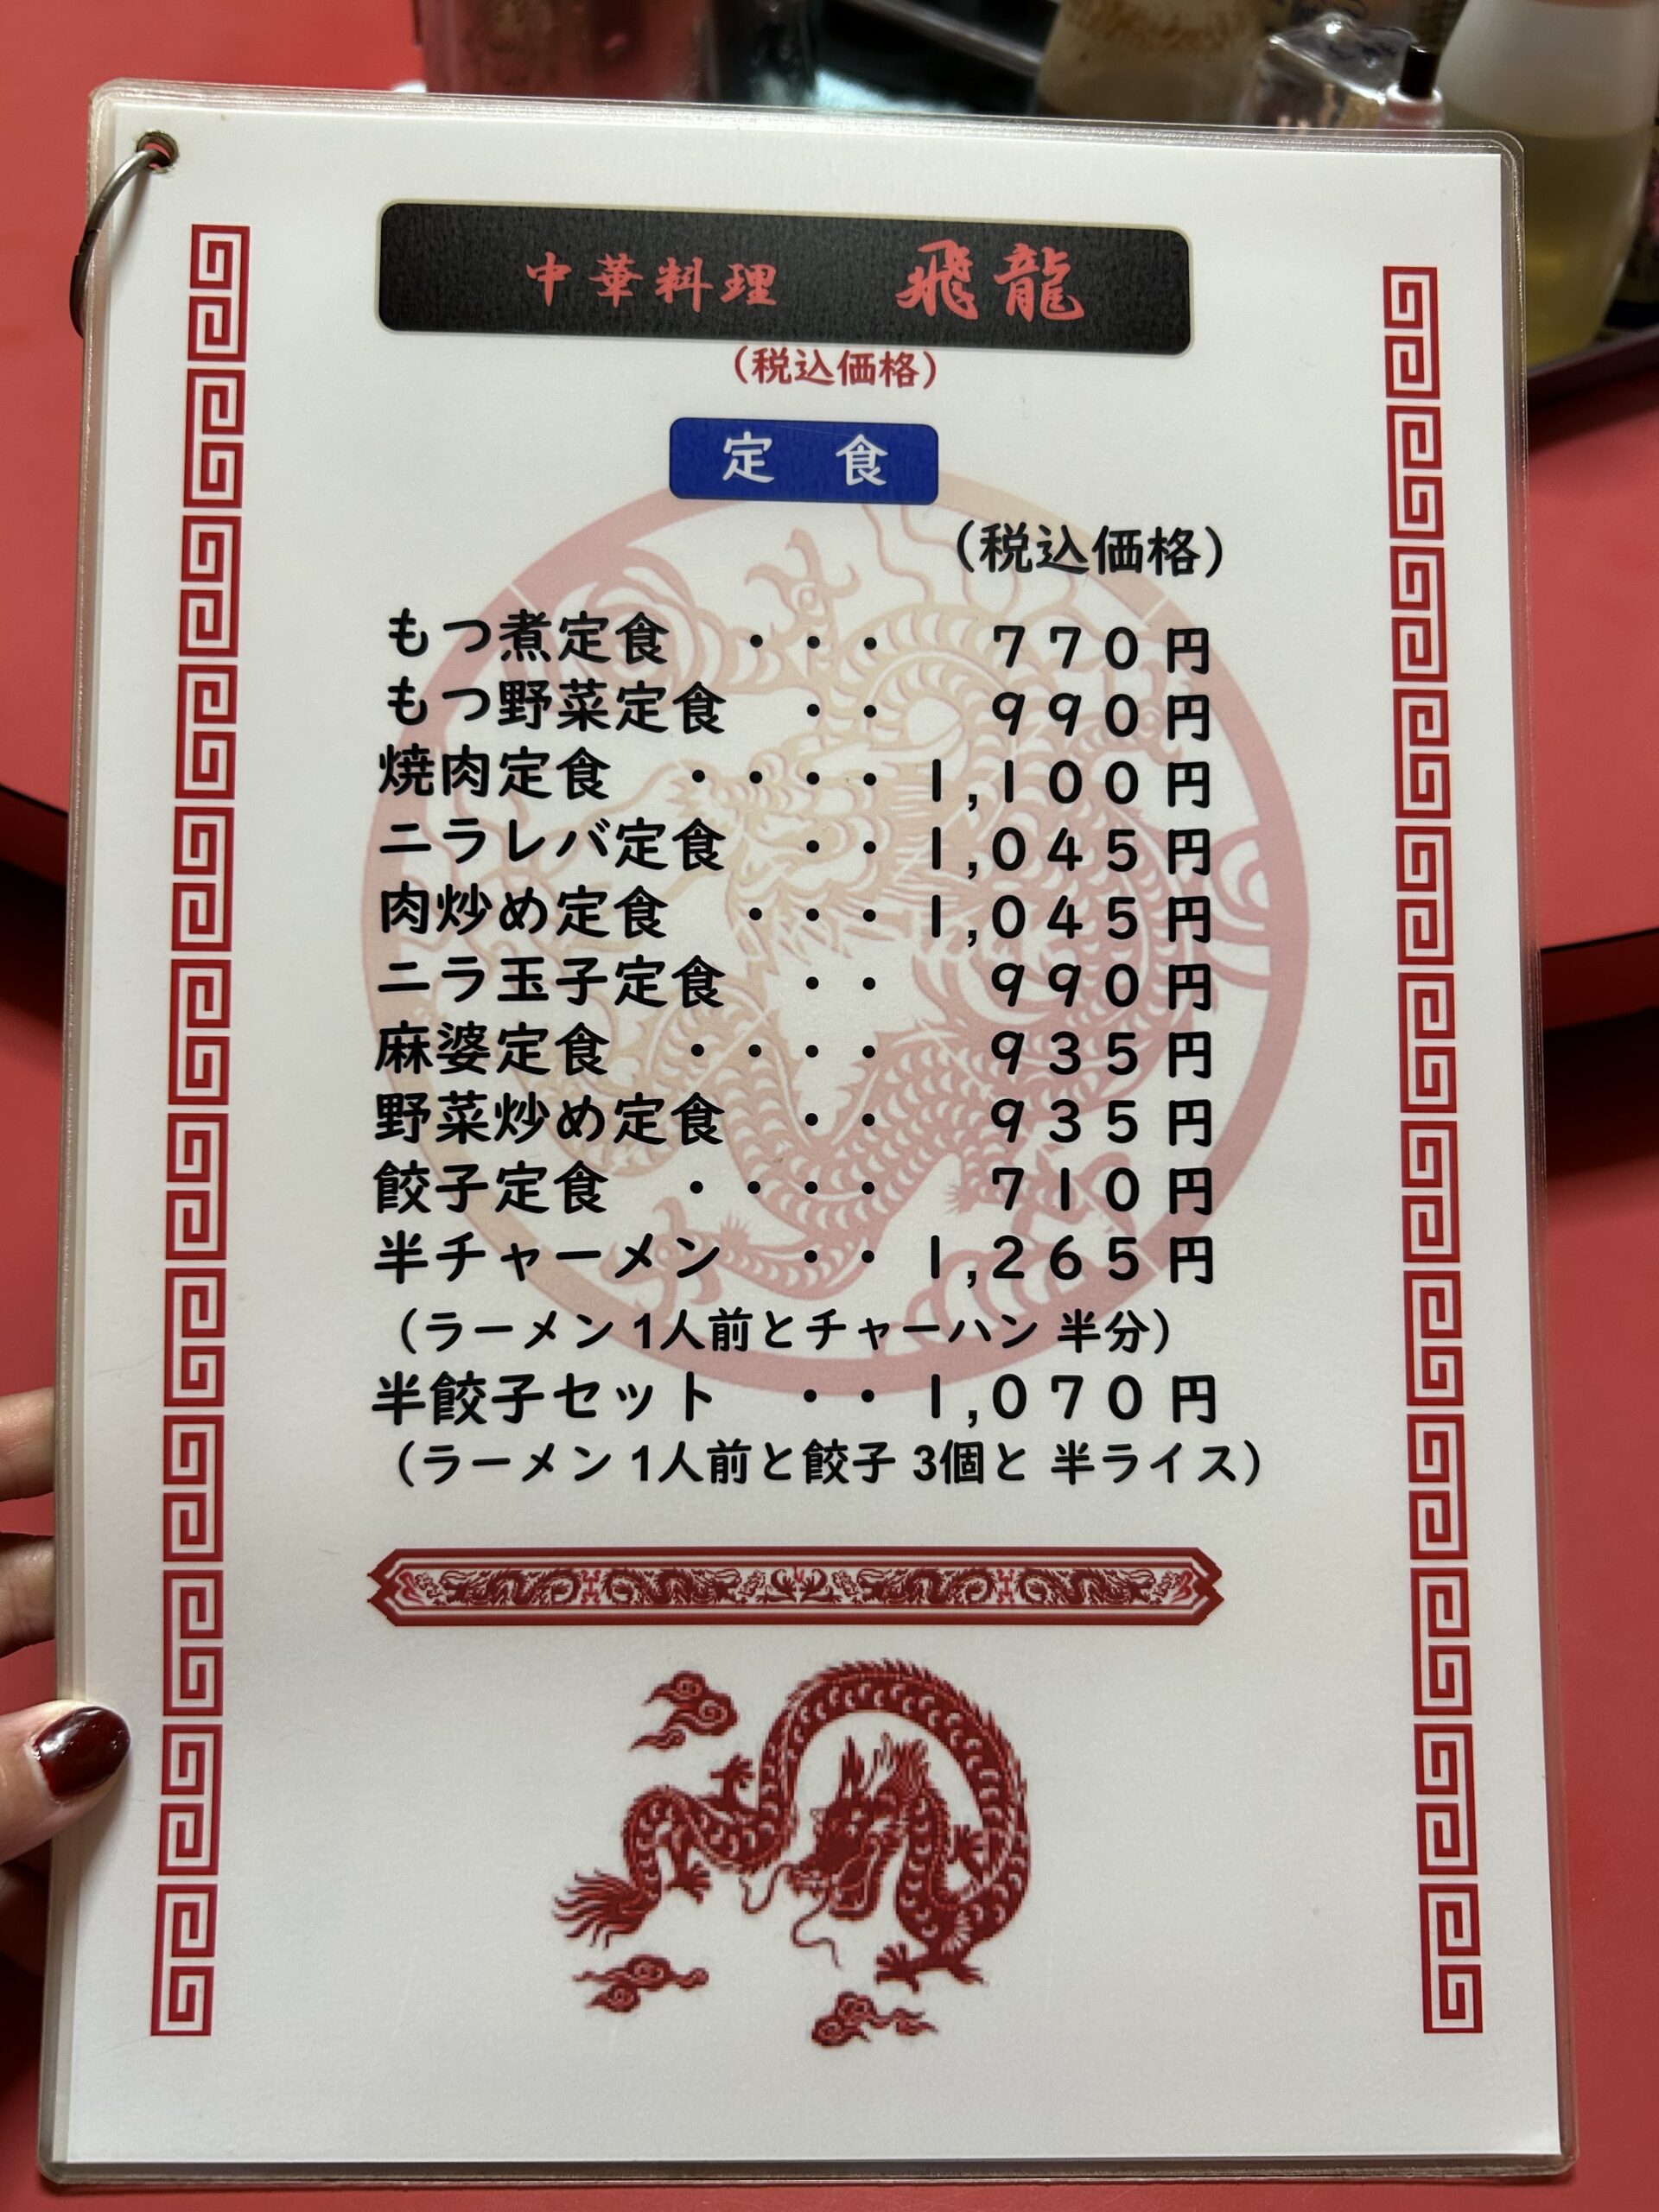 中華料理　飛龍
（税込価格）
定　食
（税込価格）
もつ煮定食　・・・　７７０円
もつ野菜定食　・・　９９０円
焼肉定食　・・・・１,１００円
ニラレバ定食　・・１,０４５円
肉炒め定食　・・・１,０４５円
ニラ玉子定食　・・　９９０円
麻婆定食　・・・・　９３５円
野菜炒め定食　・・　９３５円
餃子定食　・・・・　７１０円
半チャーメン　・・１,２６５円
（ラーメン 1人前とチャーハン 半分）
半餃子セット　・・１,０７０円
（ラーメン 1人前と餃子 3個と 半ライス）